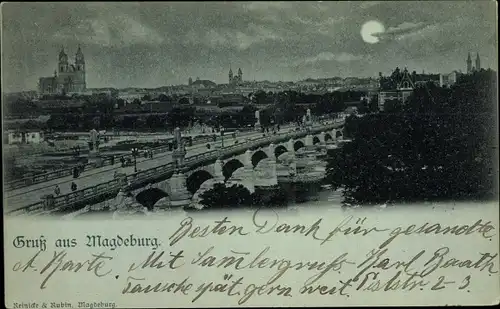 Gruß aus Magdeburg.
Besten Dank für gesandte
A. Karte. Mit Sammlergruss Karl Baath
tausche spät gern weit
Reinicke & Rubin, Magdeburg.